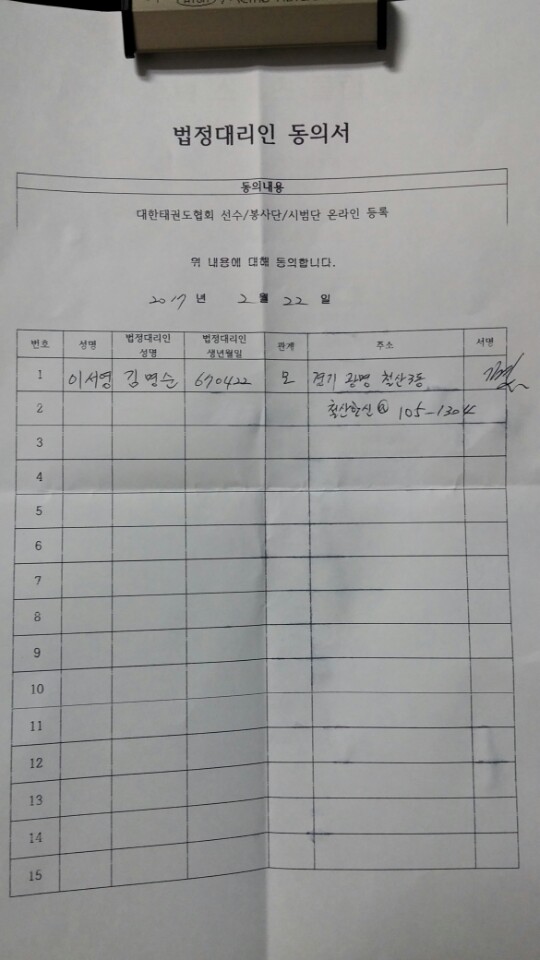 법정대리인 동의서
동의내용
대한태권도협회 선수/봉사단/시범단 온라인 등록
위 내용에 대해 동의합니다.
2017 년 2 월 22 일
번호 성명 법정대리인 성명 법정대리인 생년월일 관계 주소 서명
1 이서영 김명순 670422 모 경기 광명 철산3동
2 철산한신@ 105-1304
3
4
5
6
7
8
9
10
11
12
13
14
15